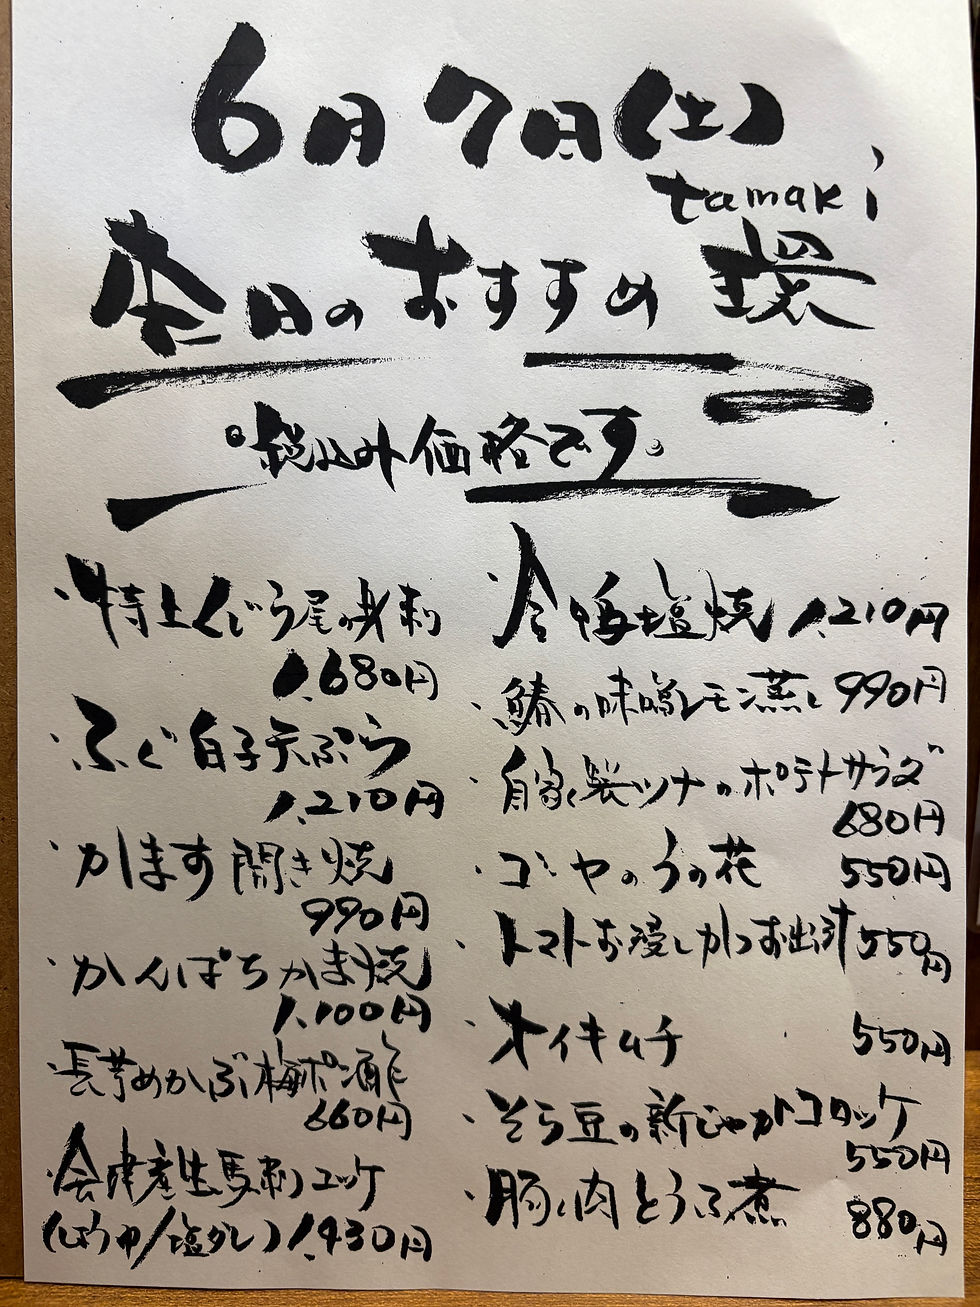 6月7日(土)
tamaki
本日のおすすめ 環
税込み価格です。
・特上くじら尾の身刺
1,680円
・ふぐ白子天ぷら
1,210円
・かます開き焼
990円
・かんぱちかま焼
1,100円
・長芋めかぶ梅ポン酢
660円
・会津産生馬刺ユッケ
(しょうゆ/塩ダレ) 1,430円
・合鴨塩焼 1,210円
・鰆の味噌レモン蒸し 990円
・自家製ツナのポテトサラダ
680円
・ゴーヤのうの花 550円
・トマトお浸しかつお出汁 550円
・オイキムチ 550円
・そら豆の新じゃがコロッケ
550円
・豚肉とうふ煮 880円